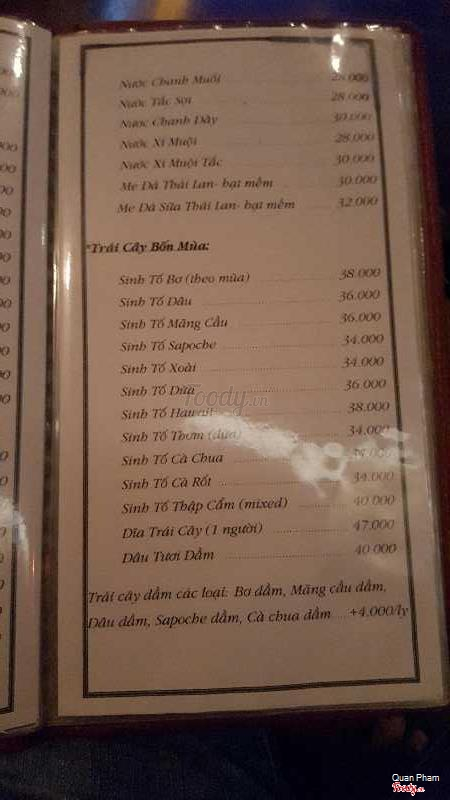 Nước Chanh Muối 28.000
Nước Tắc Sợi 28.000
Nước Chanh Dây 30.000
Nước Xí Muội 28.000
Nước Xí Muội Tắc 30.000
Me Đá Thái Lan- hạt mềm 30.000
Me Đá Sữa Thái Lan- hạt mềm 32.000
*Trái Cây Bốn Mùa:
Sinh Tố Bơ (theo mùa) 38.000
Sinh Tố Dâu 36.000
Sinh Tố Mãng Cầu 36.000
Sinh Tố Sapoche 34.000
Sinh Tố Xoài 34.000
Sinh Tố Dừa 36.000
Sinh Tố Hawaii 38.000
Sinh Tố Thơm (dứa) 34.000
Sinh Tố Cà Chua
Sinh Tố Cà Rốt 34.000
Sinh Tố Thập Cẩm (mixed) 40.000
Dĩa Trái Cây (1 người) 47.000
Dâu Tươi Dầm 40.000
Trái cây dầm các loại: Bơ dầm, Mãng cầu dầm,
Dâu dầm, Sapoche dầm, Cà chua dầm ....+4.000/ly
Foody.vn
Quan Pham
Foody.vn